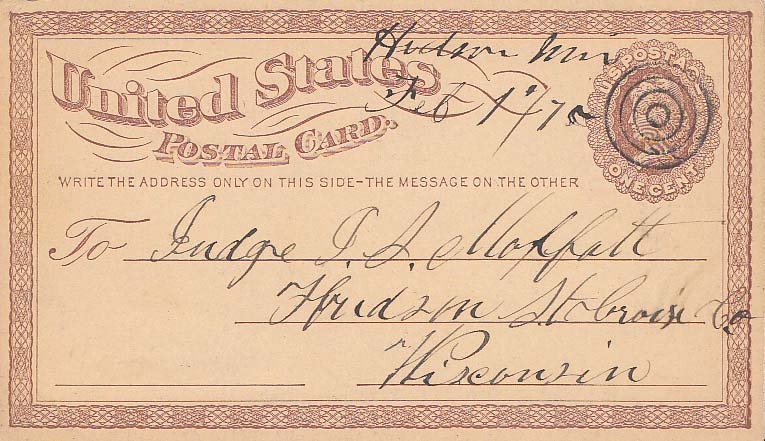 United States
Hudson Wis
Feb 1st/75
POSTAL CARD.
U.S. POSTAGE
ONE CENT
WRITE THE ADDRESS ONLY ON THIS SIDE-THE MESSAGE ON THE OTHER
To Judge T. S. Moffatt
Hudson St Croix Co
Wisconsin